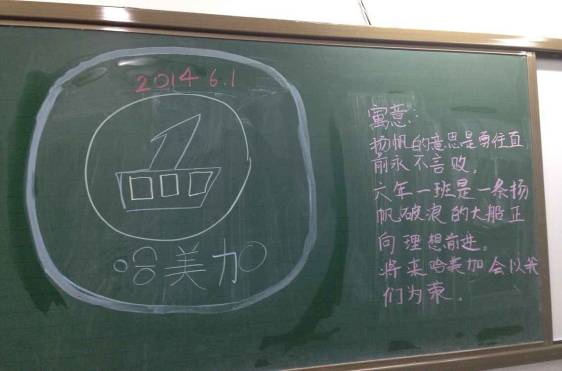 2014 6.1
哈美加
寓意:
扬帆的意思是勇往直
前永不言败。
六年一班是一条扬
帆破浪的大船正
向理想前进。
将来哈美加会以我
们为荣。